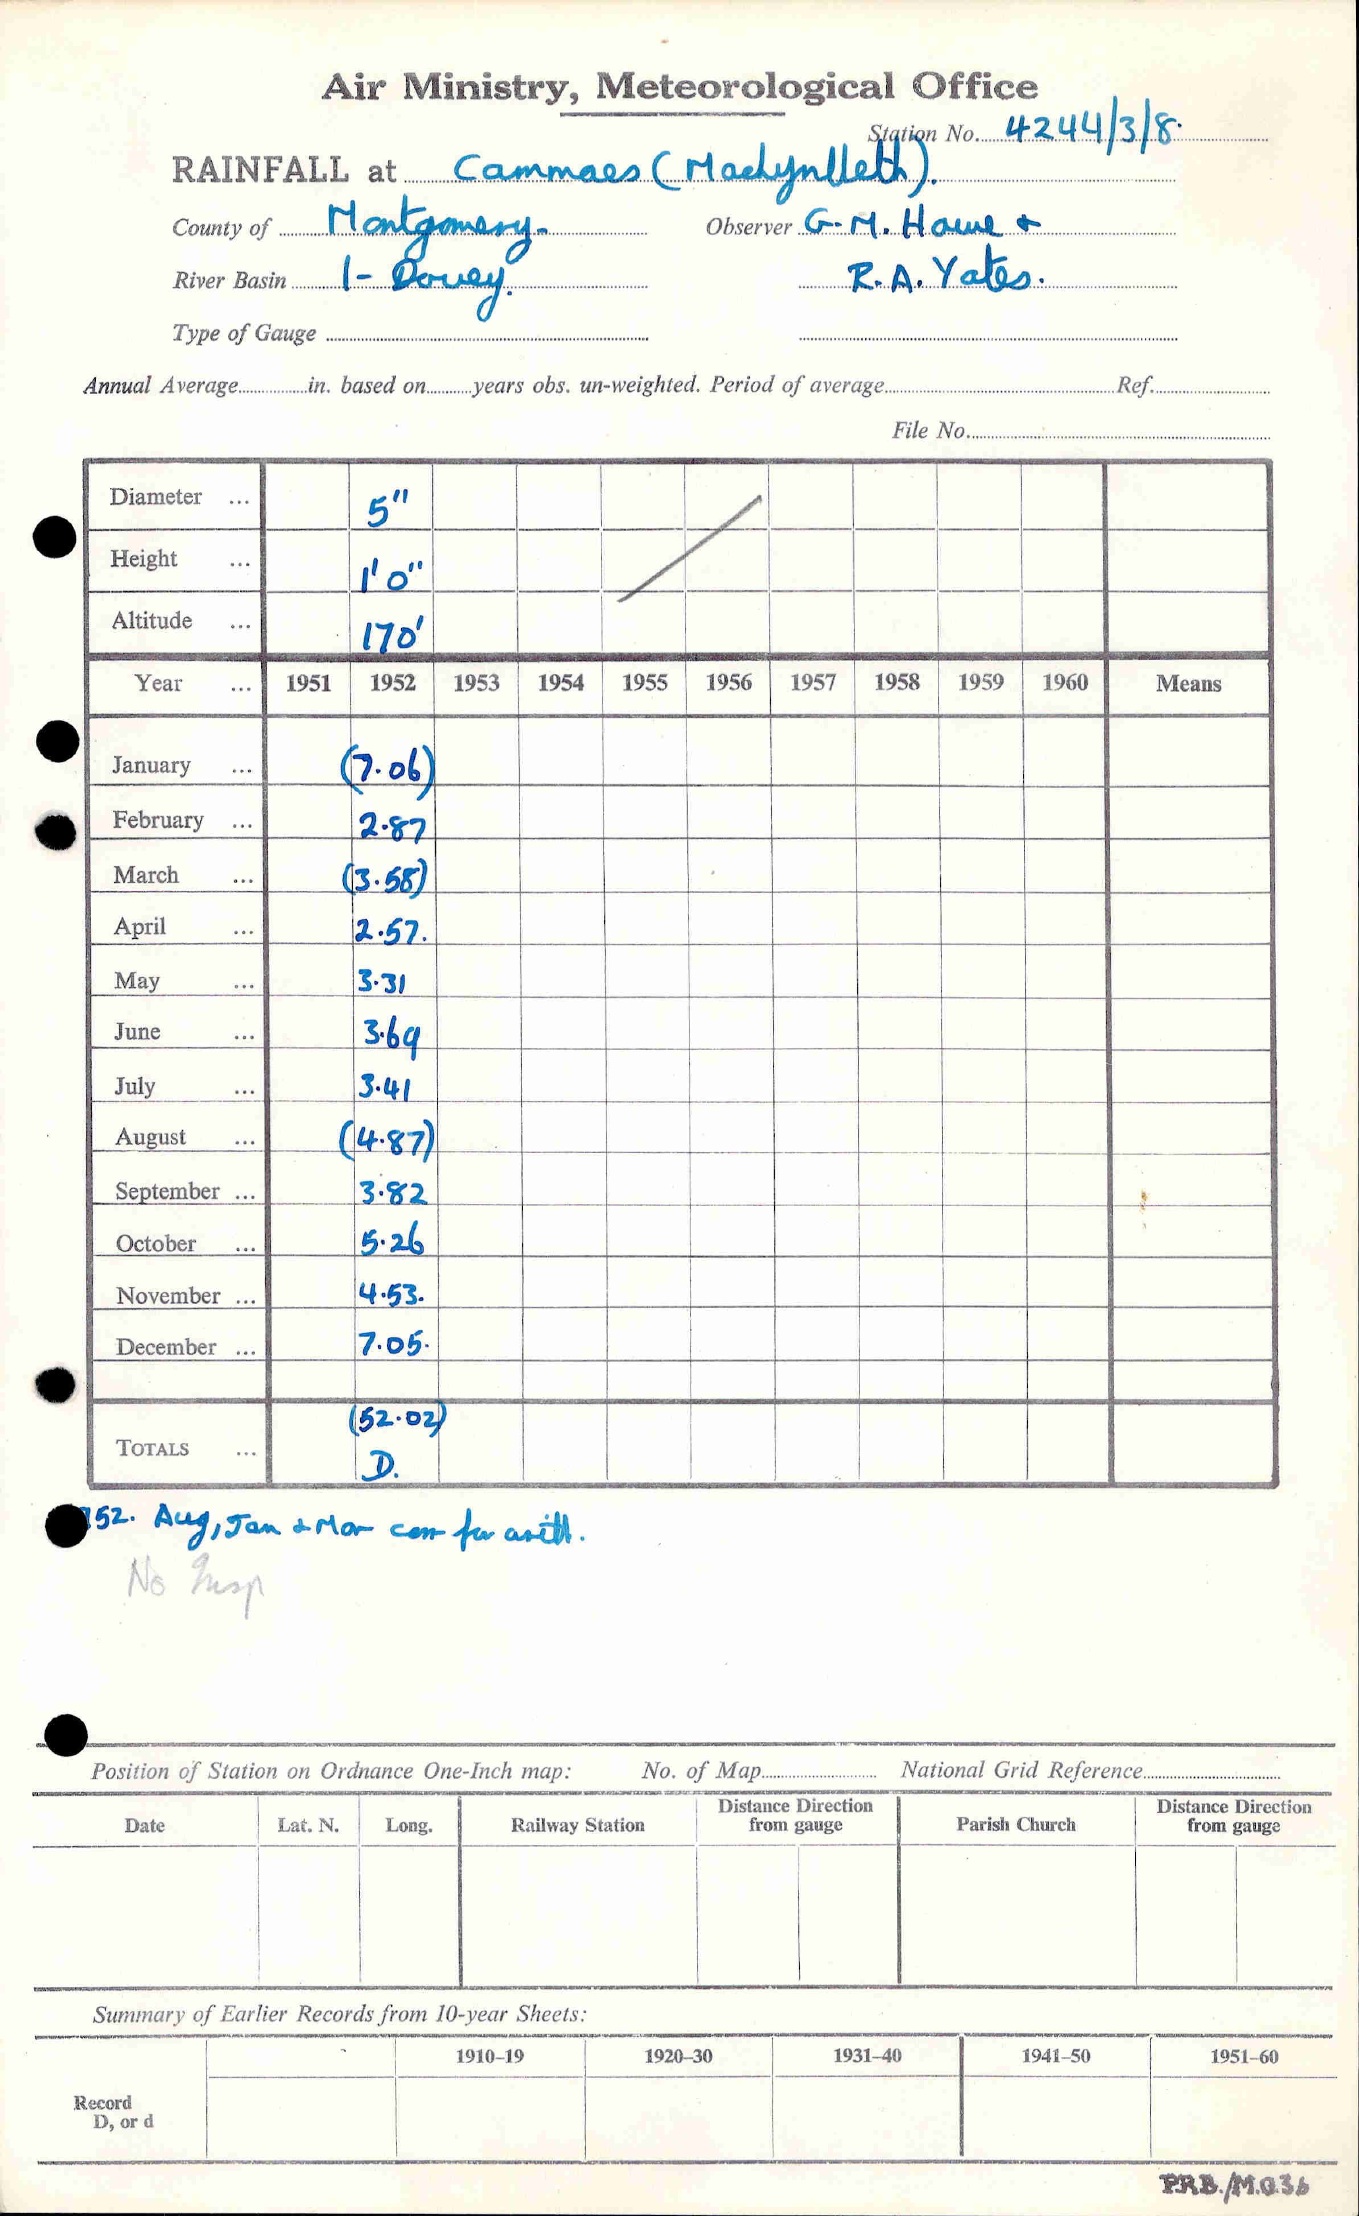 Air Ministry, Meteorological Office
Station No. 4244/3/8.
RAINFALL at Cammaes (Machynlleth).
County of Montgomery. Observer G. M. Howe +
River Basin 1- Dovey. R. A. Yates.
Type of Gauge
Annual Average in. based on years obs. un-weighted. Period of average Ref.
File No.
Diameter ... 5"
Height ... 1' 0"
Altitude ... 170'
Year ... 1951 1952 1953 1954 1955 1956 1957 1958 1959 1960 Means
January ... (7.06)
February ... 2.87
March ... (3.58)
April ... 2.57.
May ... 3.31
June ... 3.69
July ... 3.41
August ... (4.87)
September ... 3.82
October ... 5.26
November ... 4.53.
December ... 7.05.
TOTALS ... (52.02)
D.
52. Aug, Jan + Mar corr for arith.
No Insp
Position of Station on Ordnance One-Inch map: No. of Map National Grid Reference
Date Lat. N. Long. Railway Station Distance Direction from gauge Parish Church Distance Direction from gauge
Summary of Earlier Records from 10-year Sheets:
1910–19 1920–30 1931–40 1941–50 1951–60
Record
D, or d
P.R.B./M.O.36